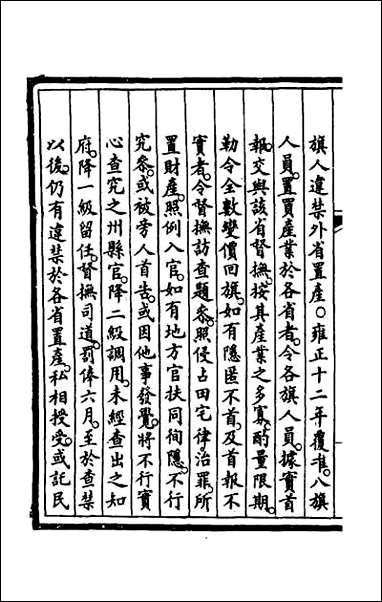 旗人違禁外省置產○雍正十二年覆准。八旗
人員。置買產業於各省者。令各旗人員。據實首
報。交與該省督撫。按其產業之多寡。酌量限期。
勒令全數變價回旗。如有隱匿不首。及首報不
實者。令督撫訪查題參。照侵占田宅律治罪。所
置財產。照例入官。如有地方官扶同徇隱。不行
究參。或被旁人首告。或因他事發覺。將不行實
心查究之州縣官。降二級調用。未經查出之知
府。降一級留任。督撫司道。罰俸六月。至於查禁
以後。仍有違禁於各省置產。私相授受。或託民